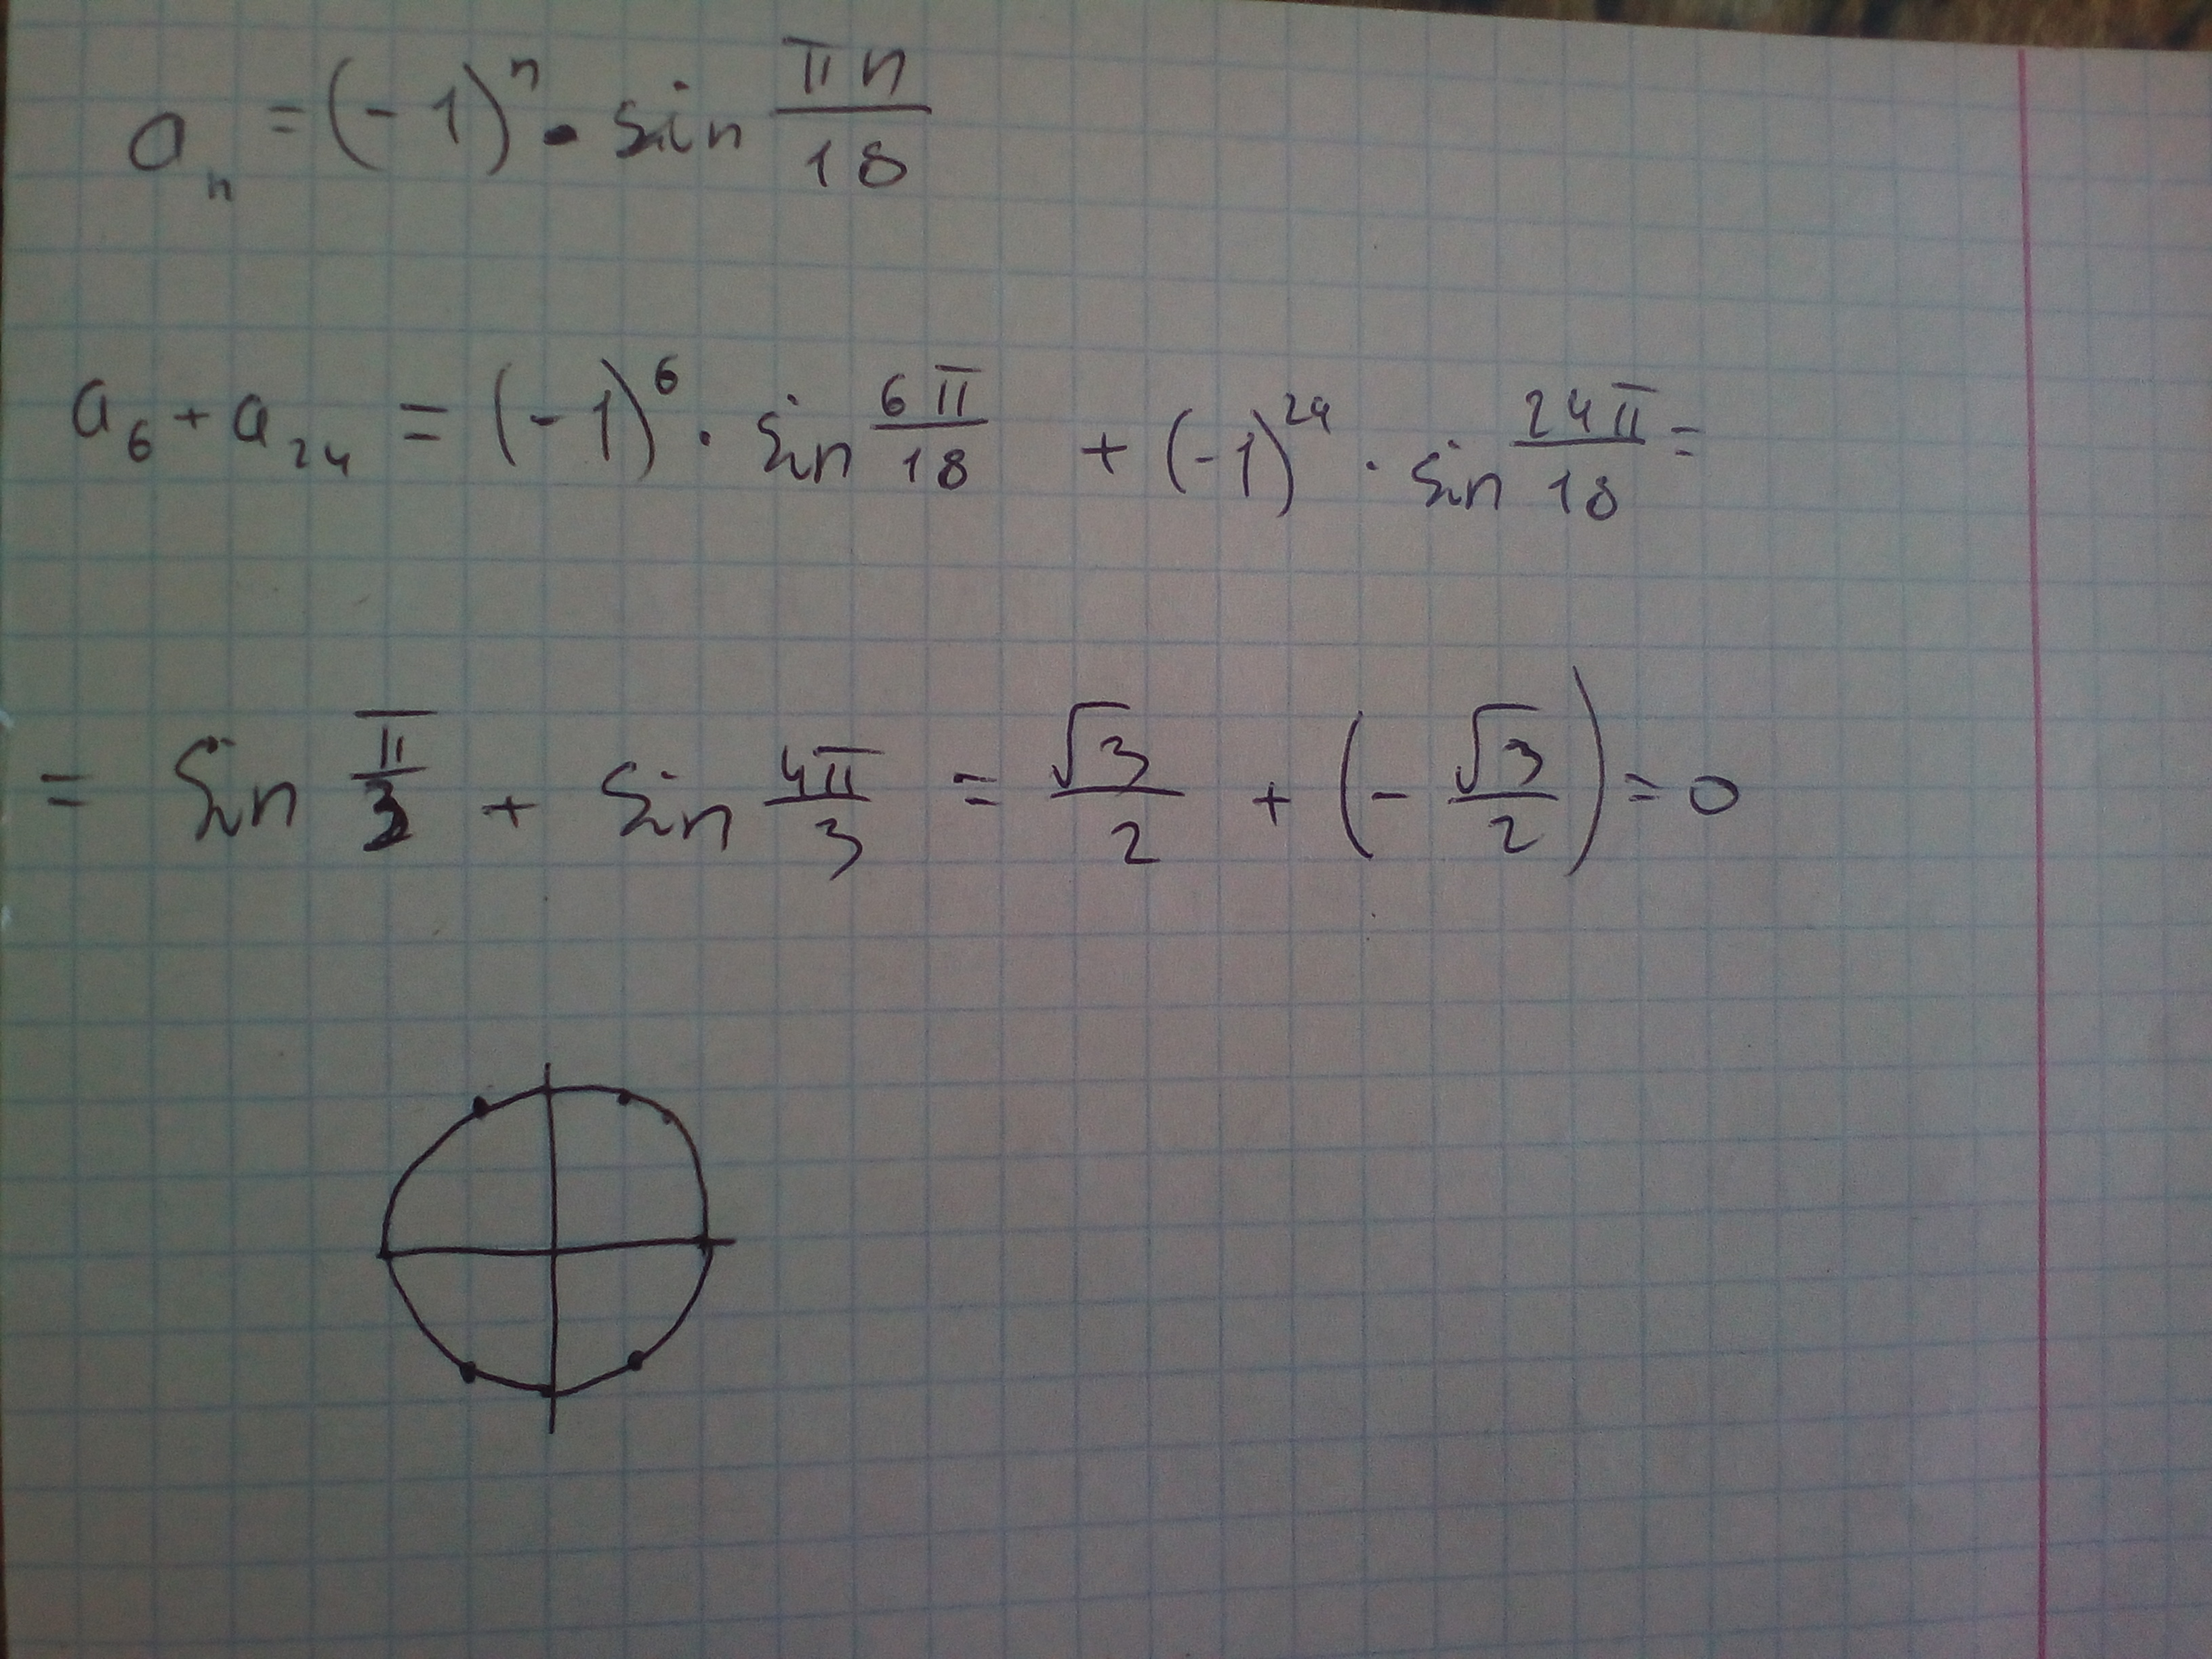 aₙ = (-1)ⁿ · sin πn/18
a₆ + a₂₄ = (-1)⁶ · sin 6π/18 + (-1)²⁴ · sin 24π/18 =
= sin π/3 + sin 4π/3 = √3/2 + (-√3/2) = 0